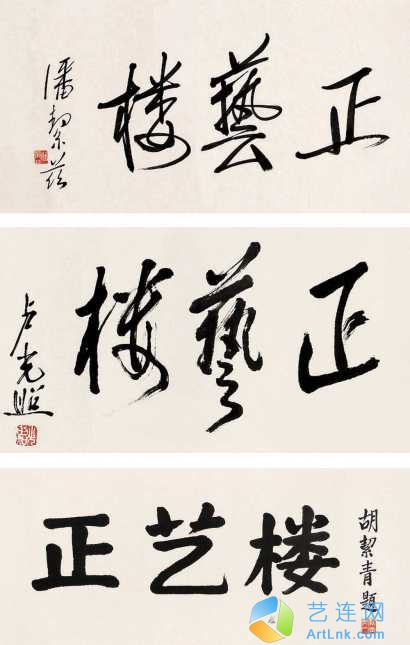 正藝楼
潘絜兹
正藝楼
卢光照
正艺楼
胡絜青题
艺连网
ArtLnk.com